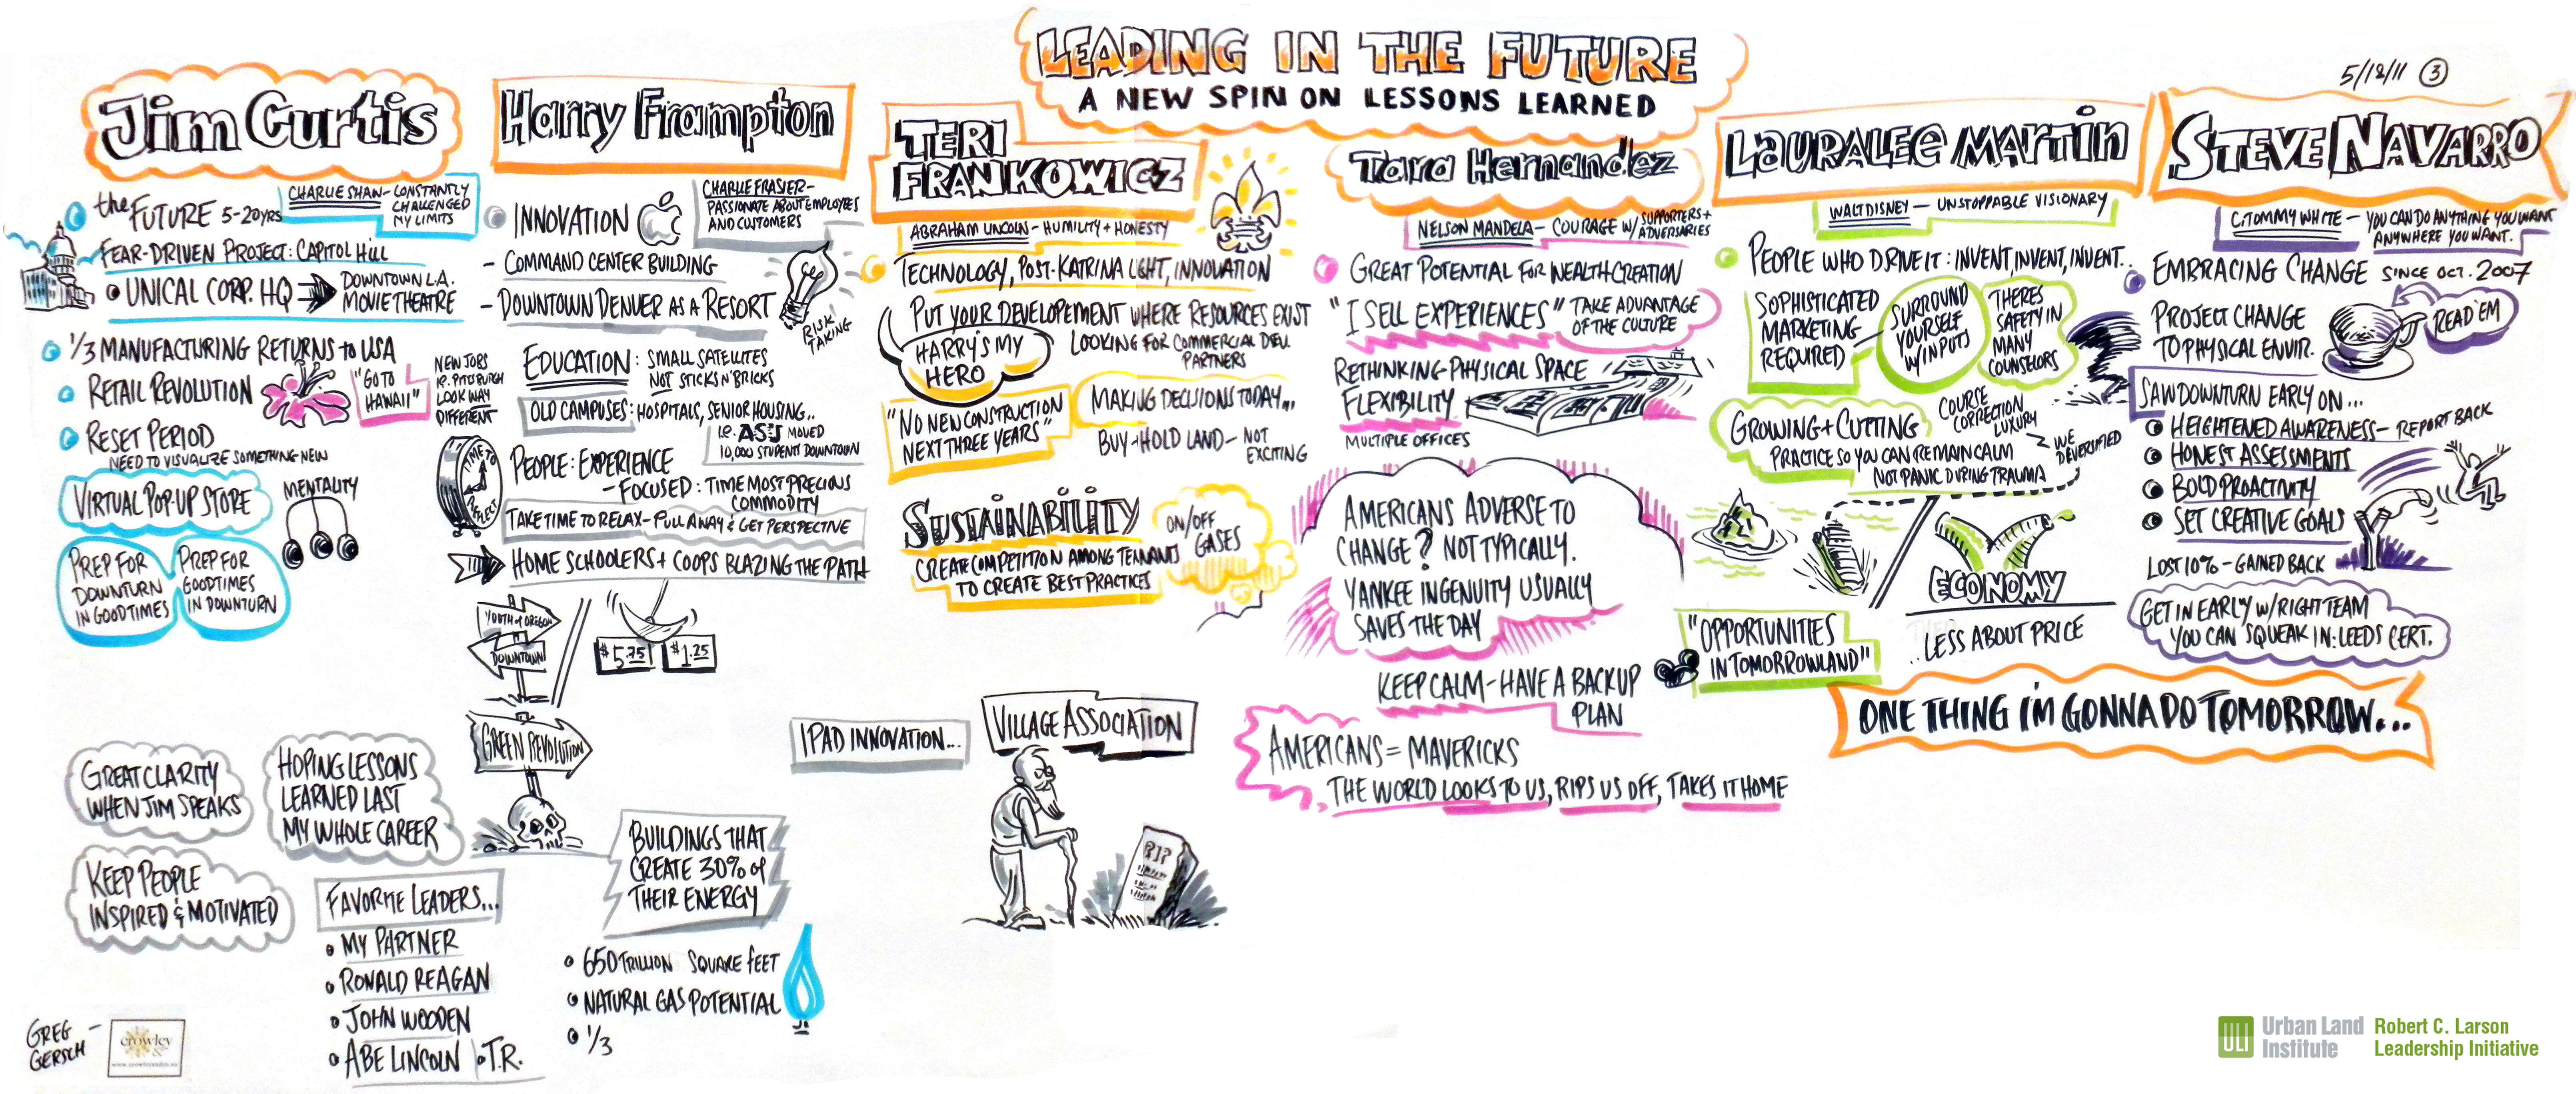 LEADING IN THE FUTURE
A NEW SPIN ON LESSONS LEARNED
5/12/11 3
Jim Curtis
the FUTURE 5-20YRS
CHARLIE SHAW - CONSTANTLY
CHALLENGED
MY LIMITS
FEAR-DRIVEN PROJECT: CAPITOL HILL
UNICAL CORP. HQ
DOWNTOWN L.A.
MOVIE THEATRE
1/3 MANUFACTURING RETURNS to USA
RETAIL REVOLUTION
"GO TO
HAWAII"
NEW JOBS
i.e. PITTSBURGH
LOOK WAY
DIFFERENT
RESET PERIOD
NEED TO VISUALIZE SOMETHING NEW
VIRTUAL POP-UP STORE
MENTALITY
PREP FOR
DOWNTURN
IN GOODTIMES
PREP FOR
GOODTIMES
IN DOWNTURN
Harry Frampton
INNOVATION
CHARLIE FRASIER -
PASSIONATE ABOUT EMPLOYEES
AND CUSTOMERS
- COMMAND CENTER BUILDING
- DOWNTOWN DENVER AS A RESORT
RISK
TAKING
EDUCATION: SMALL SATELLITES
NOT STICKS N' BRICKS
OLD CAMPUSES: HOSPITALS, SENIOR HOUSING..
i.e. ASU MOVED
10,000 STUDENTS DOWNTOWN
TIME TO
REFLECT
PEOPLE: EXPERIENCE
- FOCUSED: TIME MOST PRECIOUS
COMMODITY
TAKE TIME TO RELAX - PULL AWAY & GET PERSPECTIVE
HOME SCHOOLERS + COOPS BLAZING THE PATH
YOUTH of OREGON
DOWNTOWN
$5.75
$1.25
GREEN REVOLUTION
TERI
FRANKOWICZ
ABRAHAM LINCOLN - HUMILITY + HONESTY
TECHNOLOGY, POST-KATRINA LIGHT, INNOVATION
PUT YOUR DEVELOPEMENT WHERE RESOURCES EXIST
HARRY'S MY
HERO
LOOKING FOR COMMERCIAL DEV.
PARTNERS
"NO NEW CONSTRUCTION
NEXT THREE YEARS"
MAKING DECISIONS TODAY...
BUY + HOLD LAND - NOT
EXCITING
SUSTAINABILITY
ON/OFF
GASES
CREATE COMPETITION AMONG TENNANTS
TO CREATE BEST PRACTICES
Tara Hernandez
NELSON MANDELA - COURAGE W/ SUPPORTERS +
ADVERSARIES
GREAT POTENTIAL FOR WEALTH CREATION
"I SELL EXPERIENCES"
TAKE ADVANTAGE
OF THE CULTURE
RETHINKING-PHYSICAL SPACE
FLEXIBILITY
MULTIPLE OFFICES
AMERICANS ADVERSE TO
CHANGE? NOT TYPICALLY.
YANKEE INGENUITY USUALLY
SAVES THE DAY
KEEP CALM - HAVE A BACKUP
PLAN
AMERICANS = MAVERICKS
THE WORLD LOOKS TO US, RIPS US OFF, TAKES IT HOME
LAURALEE MARTIN
WALT DISNEY - UNSTOPPABLE VISIONARY
PEOPLE WHO DRIVE IT: INVENT, INVENT, INVENT..
SOPHISTICATED
MARKETING
REQUIRED
SURROUND
YOURSELF
W/ INPUTS
THERES
SAFETY IN
MANY
COUNSELORS
GROWING + CUTTING
COURSE
CORRECTION
LUXURY
WE
DEVERSIFIED
PRACTICE SO YOU CAN REMAIN CALM
NOT PANIC DURING TRAUMA
ECONOMY
..LESS ABOUT PRICE
"OPPORTUNITIES
IN TOMORROWLAND"
STEVE NAVARRO
C. TOMMY WHITE - YOU CAN DO ANYTHING YOU WANT
ANYWHERE YOU WANT.
EMBRACING CHANGE SINCE OCT. 2007
PROJECT CHANGE
TO PHYSICAL ENVIR.
READ 'EM
SAW DOWNTURN EARLY ON...
HEIGHTENED AWARENESS - REPORT BACK
HONEST ASSESSMENTS
BOLD PROACTIVITY
SET CREATIVE GOALS
LOST 10% - GAINED BACK
GET IN EARLY W/ RIGHT TEAM
YOU CAN SQUEAK IN: LEEDS CERT.
ONE THING I'M GONNA DO TOMORROW...
GREAT CLARITY
WHEN JIM SPEAKS
HOPING LESSONS
LEARNED LAST
MY WHOLE CAREER
KEEP PEOPLE
INSPIRED & MOTIVATED
FAVORITE LEADERS...
• MY PARTNER
• RONALD REAGAN
• JOHN WOODEN
• ABE LINCOLN • T.R.
BUILDINGS THAT
CREATE 30% of
THEIR ENERGY
650 TRILLION SQUARE FEET
NATURAL GAS POTENTIAL
1/3
IPAD INNOVATION...
VILLAGE ASSOCIATION
RIP
GREG -
GERSCH
crowley
&
ULI Urban Land
Institute
Robert C. Larson
Leadership Initiative